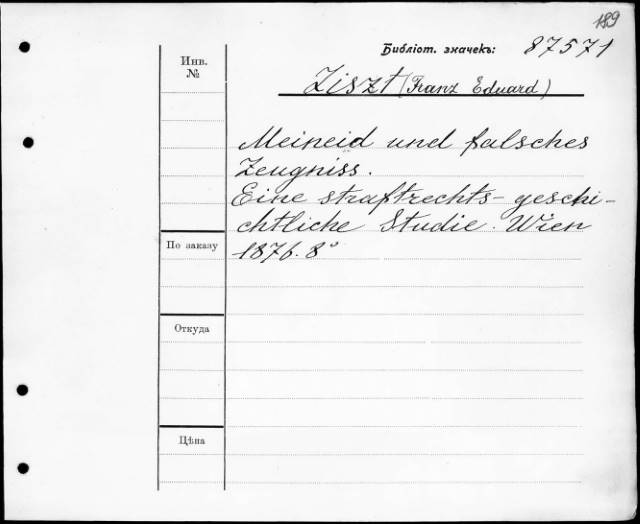 189
Библіот. значекъ: 87571
Инв.
№
Liszt (Franz Eduard)
Meineid und falsches
Zeugniss.
Eine straftrechts-geschi-
chtliche Studie. Wien
1876. 8°
По заказу
Откуда
Цѣна